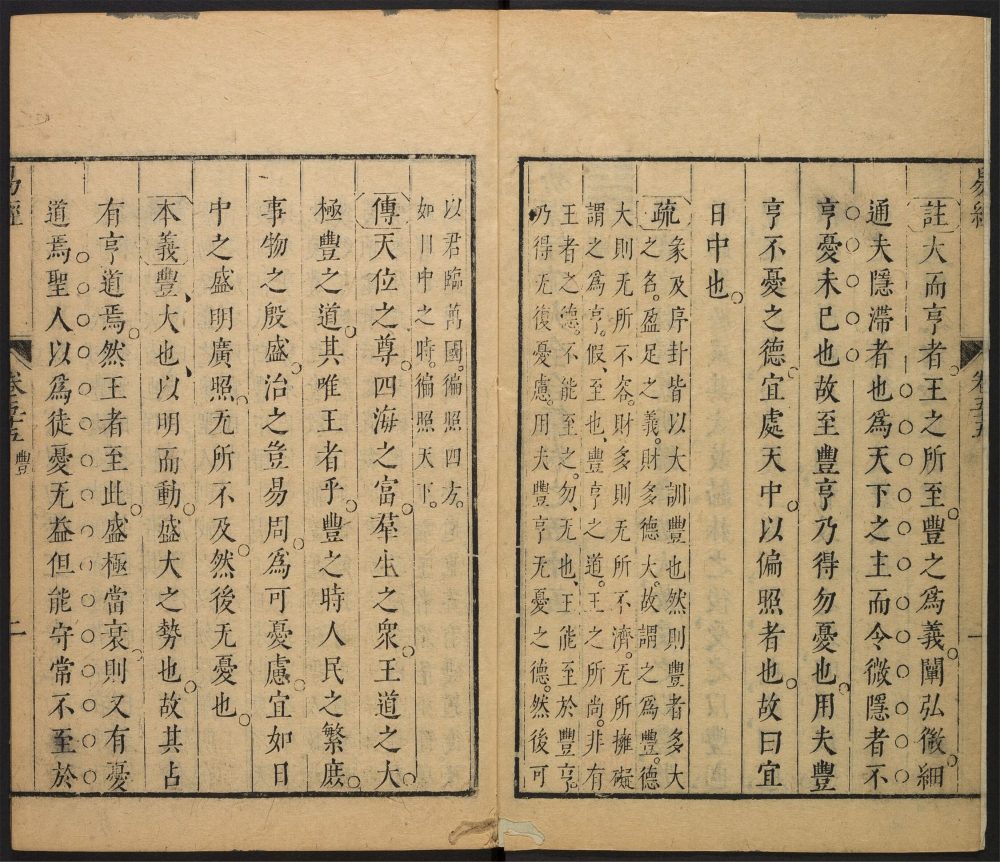 易經
卷五五
一
註大而亨者王之所至豐之爲義闡弘微細
通夫隱滯者也爲天下之主而令微隱者不
亨憂未已也故至豐亨乃得勿憂也用夫豐
亨不憂之德宜處天中以偏照者也故曰宜
日中也
疏彖及序卦皆以大訓豐也然則豐者多大
之名盈足之義財多德大故謂之爲豐德
大則无所不容財多則无所不濟无所擁礙
謂之爲亨假至也豐亨之道王之所尚非有
王者之德不能至之勿无也王能至於豐亨
乃得无復憂慮用夫豐亨无憂之德然後可
以君臨萬國徧照四方
如日中之時徧照天下
傳天位之尊四海之富羣生之衆王道之大
極豐之道其唯王者乎豐之時人民之繁庶
事物之殷盛治之豈易周爲可憂慮宜如日
中之盛明廣照无所不及然後无憂也
本義豐大也以明而動盛大之勢也故其占
有亨道焉然王者至此盛極當衰則又有憂
道焉聖人以爲徒憂无益但能守常不至於
易經
卷五五 豐
二